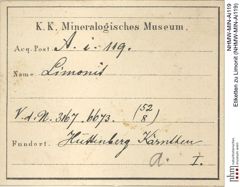 K. K. Mineralogisches Museum.
Acq. Post. A. i. 119.
Name Limonit
V. d. N. 3167. 6673. (52/8)
Fundort. Hüttenberg Kärnthen
a. I.
NHMW-MIN-Ai119
Etiketten zu Limonit (NHMW-MIN-Ai119)
nhm